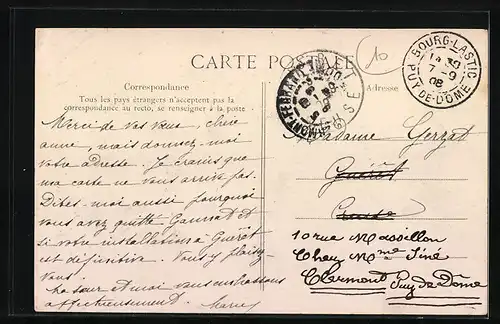 CARTE POSTALE
Correspondance
Tous les pays étrangers n'acceptent pas la
correspondance au recto, se renseigner à la poste.
Adresse
10
BOURG-LASTIC
7-9
08
PUY-DE-DÔME
Merci de vos vues, chère
anne, mais donnez-moi
votre adresse. Je crains que
ma carte ne vous arrive pas.
Dites-moi aussi pourquoi
vous avez quitté Gannat et
si votre installation à Guéret
est définitive. Vous y plaisez-
vous
Ma sœur et moi vous embrassons
affectueusement.
Madame Gerzat
Guéret
Creuse
10 rue Massillon
Chez Mme Siné
Clermont Puy de Dôme